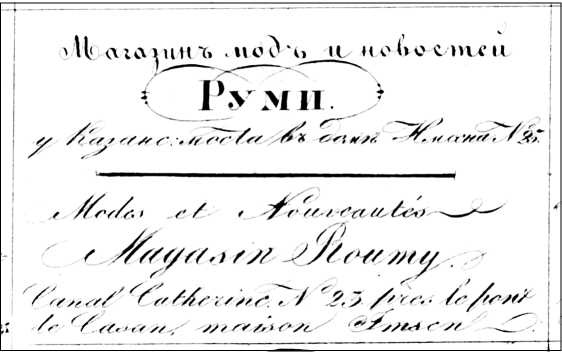 Магазинъ модъ и новостей
РУМИ.
у Казанс: моста въ домѣ Имсена № 25.
Modes et Nouveautés
Magasin Roumy.
Canal Catherine, N 25. pres le pont
de Casan, maison Imsen